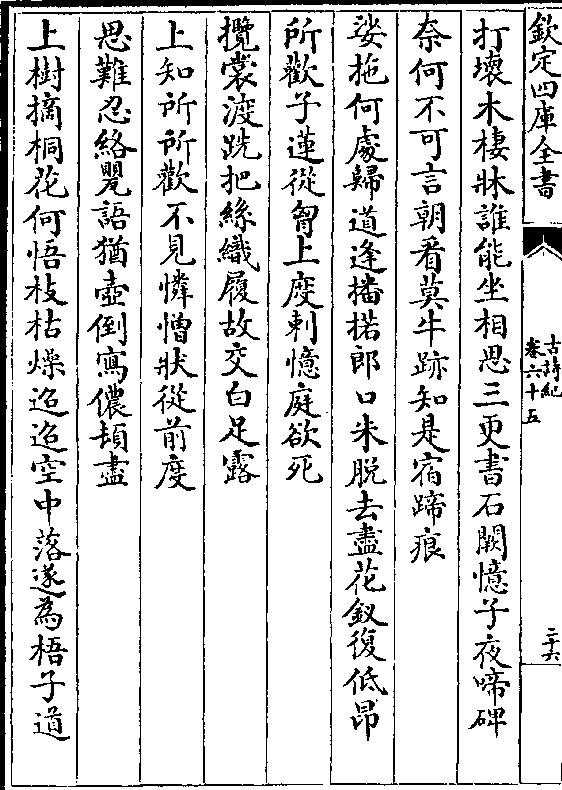 欽定四庫全書
古詩紀
卷六十五
二十六
打壞木棲牀誰能坐相思三更書石闕憶子夜啼碑
奈何不可言朝看莫牛跡知是宿蹄痕
娑拖何處歸道逢播掿郎口朱脫去盡花釵復低昂
所歡子蓮從胷上度刺憶庭欲死
攬裳渡跣把絲織履故交白足露
上知所所歡不見憐憎狀從前度
思難忍絡罌語猶壺倒寫儂頓盡
上樹摘桐花何悟枝枯燥迢迢空中落遂為梧子道